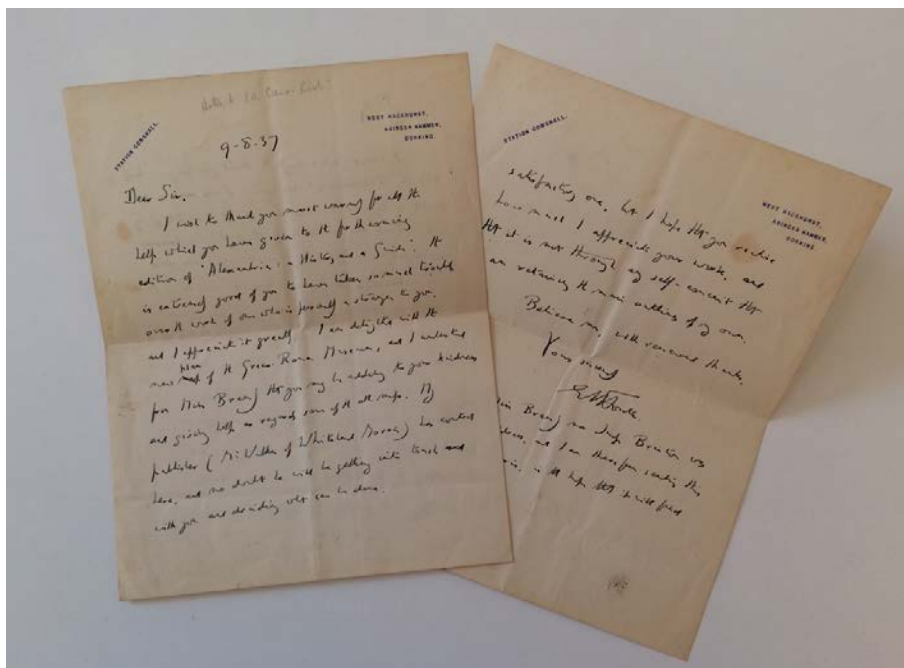 STATION GOMSHALL.
WEST HACKHURST,
ABINGER HAMMER,
DORKING.
9-8-37
Dear Sir,
I wish to thank you most warmly for all the
help which you have given to the forthcoming
edition of "Alexandria: a History and a Guide". It
is extremely good of you to have taken so much trouble
over the work of one who is personally a stranger to you,
and I appreciate it greatly. I am delighted with the
new plan of the Greco-Roman Museum, and I understand
from Miss that you may be adding to your kindness
and giving help as regards some of the other maps. My
publisher (Mr of Whitehead Morris) has
here, and no doubt he will be getting into touch
with you and deciding what can be done.
STATION GOMSHALL.
WEST HACKHURST,
ABINGER HAMMER,
DORKING.
satisfactory one, but I hope that you realise
how much I appreciate your work, and
that it is not through any self-conceit that
am retaining the main outlines of my own.
Believe me, with renewed thanks,
Yours sincerely
EMForster
and I am therefore sending this
in the hope that it will find